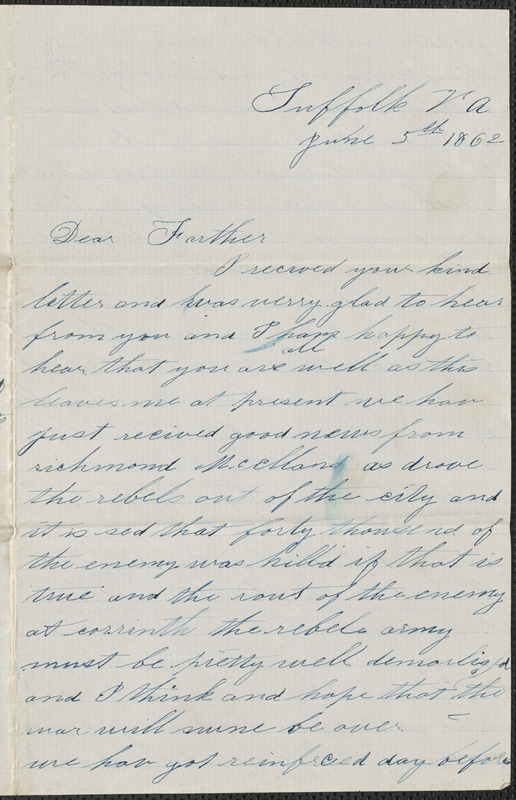 Suffolk Va
June 5th 1862
Dear Farther
I recived your kind
letter and was verry glad to hear
from you and I ham happy to
hear that you are all well as this
leaves me at present we hav
just recived good news from
richmond Mcclland as drove
the rebels out of the city and
it is sed that forty thousend of
the enemy was killd if that is
true and the rout of the enemy
at corrinth the rebele army
must be pretty well demorlized
and I think and hope that the
war will sune be over
we hav got reinforced day before